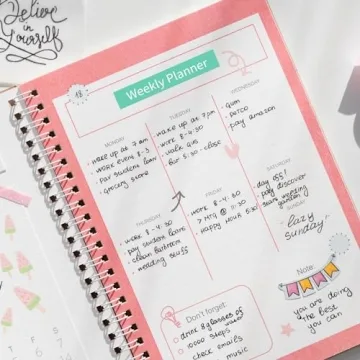 Believe in
Yourself
Weekly Planner
MONDAY
• wake up at 7 am
• work event 8-3
• pay student loans
• grocery store
TUESDAY
• wake up at 7am
• work 8-4:30
• walk Gus
• bar 5:30 - close
WEDNESDAY
• gym
• PETCO
• pay amazon
THURSDAY
• work 8-4:30
• pay student loans
• clean bathroom
• wedding stuff
FRIDAY
• work 8-4:30
> MTG @ 11:30
• HAPPY HOUR 5:30
SATURDAY
• day off!
• pay discover
wedding
garden
SUNDAY
"lazy
Sunday"
Don't forget:
drink 8 glasses of
water
10000 steps
check emails
music
Note:
you are doing
the best
you can